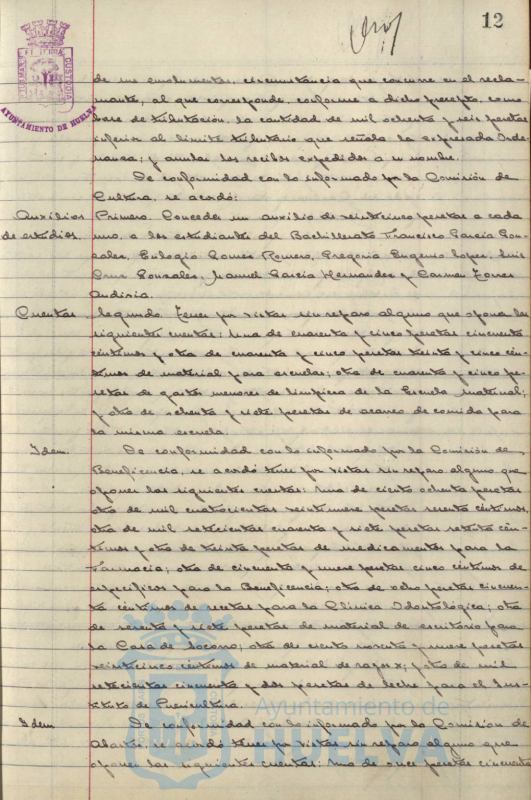 12
AYUNTAMIENTO DE HUELVA
de sus emolumentos, circunstancia que concurre en el recla-
mante, al que corresponde, conforme a dicho precepto, como
base de tributación, la cantidad de mil ochenta y seis pesetas
inferior al límite tributario que señala la expresada Orde-
nanza; y anular los recibos expedidos a su nombre.
De conformidad con lo informado por la Comisión de
Cultura, se acordó:
Auxilios Primero. Conceder un auxilio de veinticinco pesetas a cada
de estudios. uno, a los estudiantes del Bachillerato Francisco García Gon-
zález, Eulogio Gómez Romero, Gregorio Eugenio López, Luis
Cruz González, Manuel García Hernández y Carmen Torres
Cuentas. Segundo. Tener por vistas sin reparo alguno que oponer las
siguientes cuentas: Una de cuarenta y cinco pesetas cincuenta
céntimos y otra de cuarenta y cinco pesetas treinta y cinco cén-
timos de material para escuelas; otra de cuarenta y cinco pe-
setas de gastos menores de limpieza de la Escuela Maternal;
y otra de ochenta y siete pesetas de acarreo de comida para
la misma escuela.
Idem. De conformidad con lo informado por la Comisión de
Beneficencia, se acordó tener por vistas sin reparo alguno que
oponer las siguientes cuentas: Una de ciento ochenta pesetas
otra de mil cuatrocientas veintinueve pesetas sesenta céntimos,
otra de mil setecientas cuarenta y siete pesetas setenta cén-
timos y otra de treinta pesetas de medicamentos para la
Farmacia; otra de cincuenta y nueve pesetas cinco céntimos de
específicos para la Beneficencia; otra de ocho pesetas cincuen-
ta céntimos de recetas para la Clínica Odontológica; otra
de sesenta y siete pesetas de material de escritorio para
la Casa de Socorro; otra de ciento noventa y nueve pesetas
veinticinco céntimos de material de rayos x; y otra de mil
setecientas cincuenta y dos pesetas de leche para el Ins-
tituto de Puericultura.
Idem De conformidad con lo informado por la Comisión de
Abastos se acordó tener por vistas sin reparo alguno que
oponer las siguientes cuentas: Una de once pesetas cincuenta
Ayuntamiento de
HUELVA